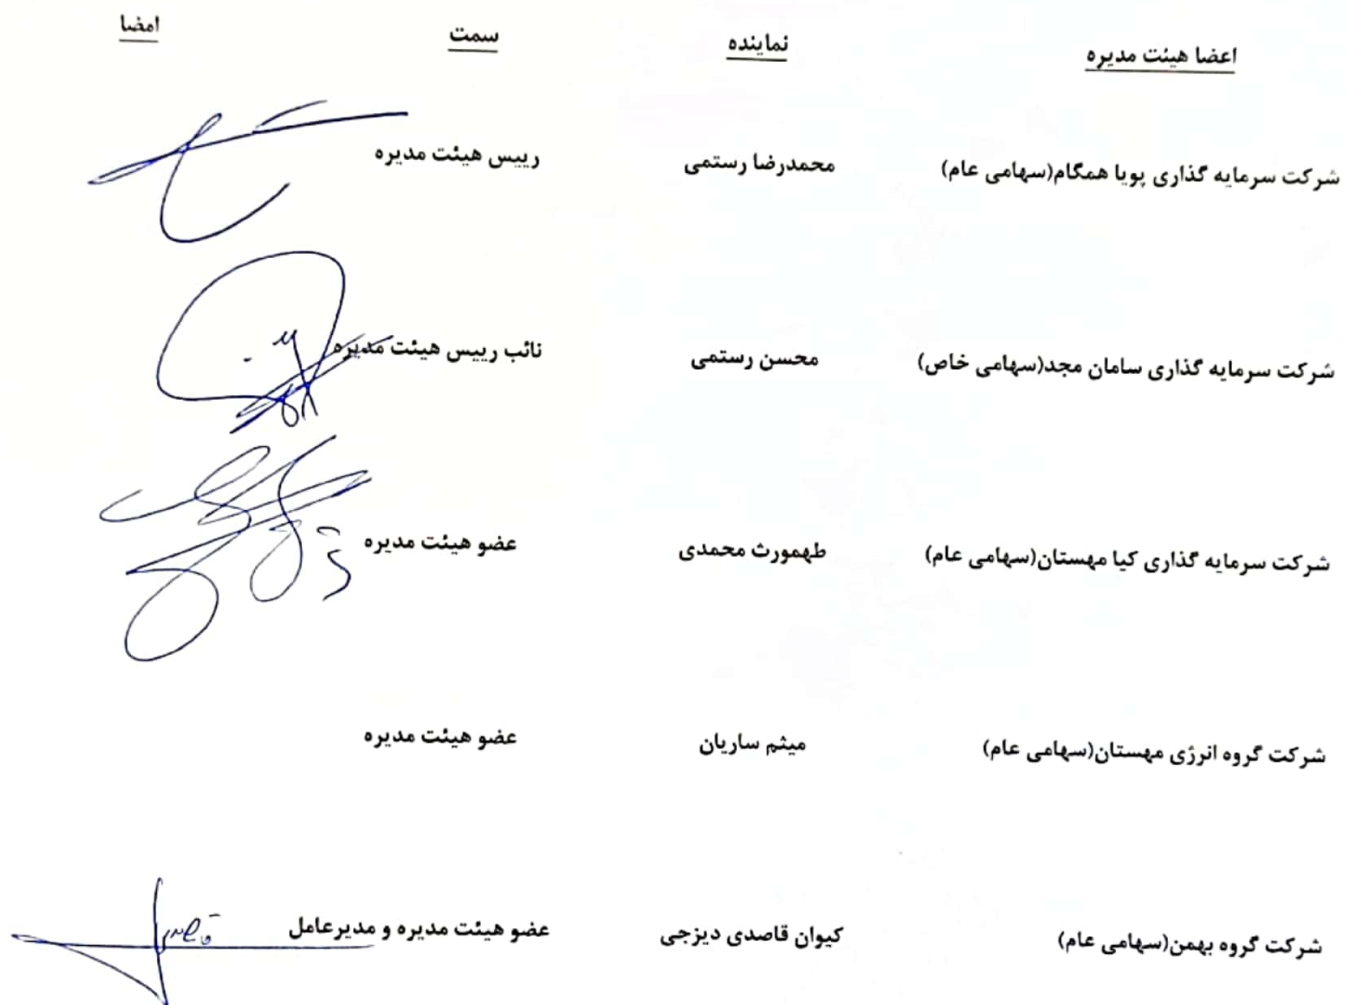 اعضا هیئت مدیره نماینده سمت امضا
شرکت سرمایه گذاری پویا همگام(سهامی عام) محمدرضا رستمی رییس هیئت مدیره
شرکت سرمایه گذاری سامان مجد(سهامی خاص) محسن رستمی نائب رییس هیئت مدیره
شرکت سرمایه گذاری کیا مهستان(سهامی عام) طهمورث محمدی عضو هیئت مدیره
شرکت گروه انرژی مهستان(سهامی عام) میثم ساریان عضو هیئت مدیره
شرکت گروه بهمن(سهامی عام) کیوان قاصدی دیزجی عضو هیئت مدیره و مدیرعامل